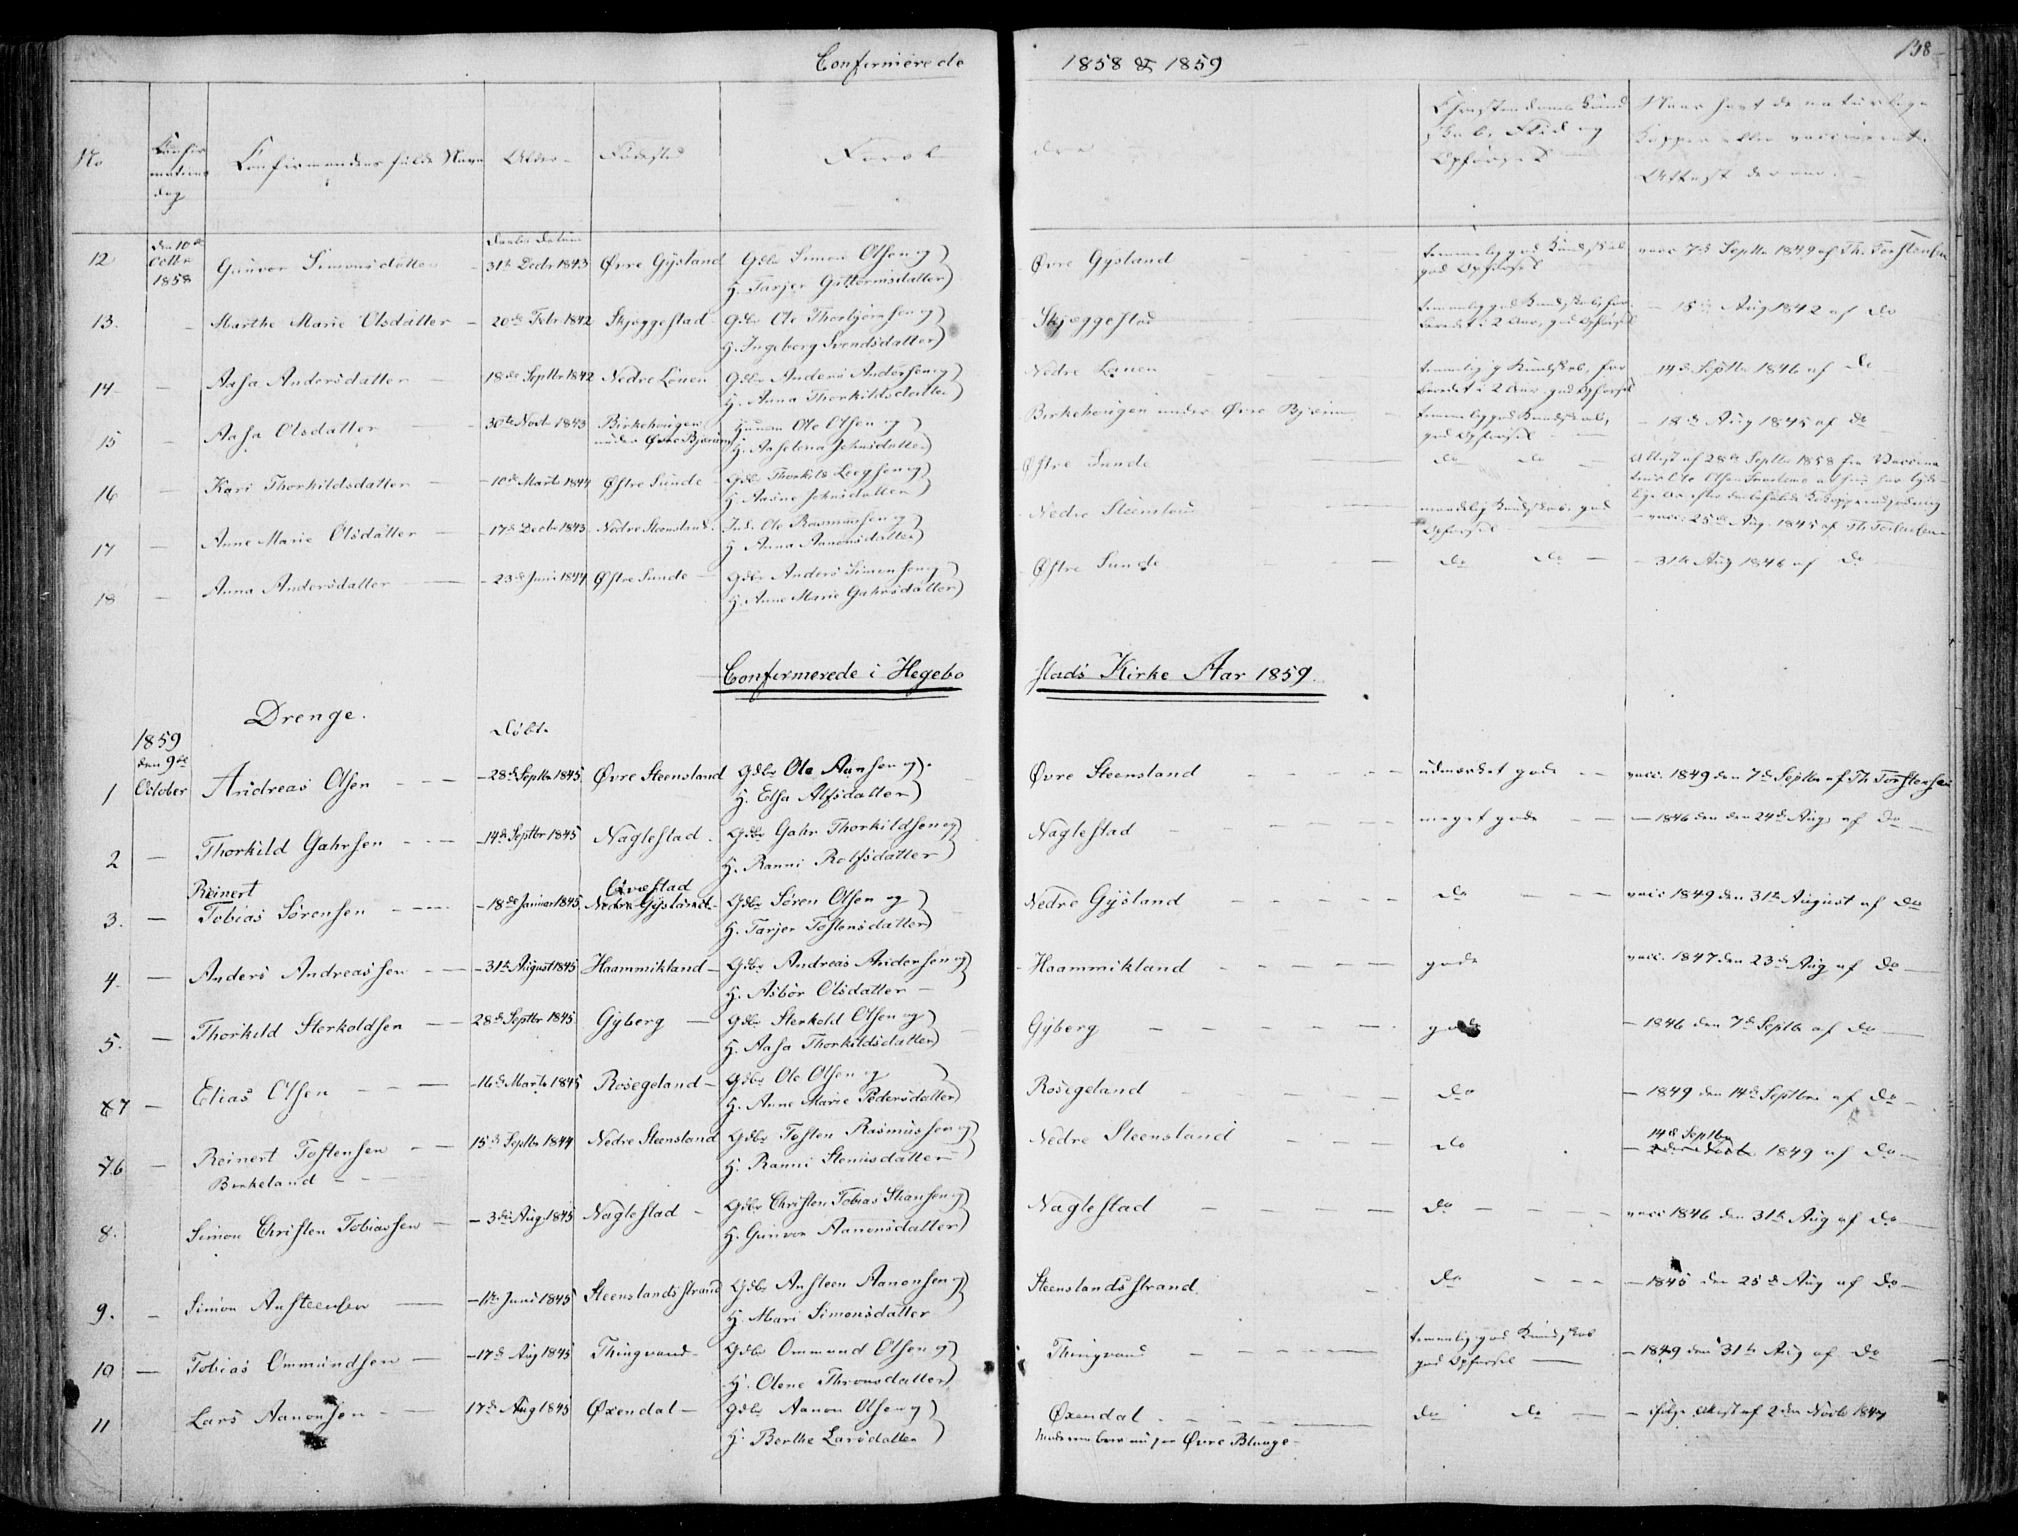 Confirmerede 1858 & 1859 138
No Confirmations dag Confirmandens fulde Navn Alder Fødested Foræl dre Christendoms Kundskab, Flid og Opførsel Naar havt de naturlige Kopper eller vaccineret Attest derom
12 den 10de Octbr 1858 Gunvor Simonsdatter - Døbte Datum 31te Decbr 1843 Øvre Gysland Gdbr Simon Olsen og Øvre Gysland temmelig god Kundskab vacc. 7de Septbr 1849 af Th. Torstensen
H. Tarjer Guttormsdatter god Opførsel
13. - Marthe Marie Olsdatter - 20de Febr 1842 Skjeggestad Gdbr Ole Thorbjørnsen og Skjeggestad temmelig god Kundskab, for - 15de Aug 1842 af do
H. Ingeborg Svendsdatter beredet i 2 Aar, god Opførsel
14 - Aasa Andersdatter - 18de Septbr 1842 Nedre Lønen Gdbr Anders Andersen og Nedre Lønen temmelig g Kundskab, for 14de Septbr 1846 af do
H. Anna Thorkildsdatter beredet i 2 Aar god Opførsel
15 - Aasa Olsdatter 30te Novbr 1843 Birkehougen Huusm Ole Olsen og Birkehougen under Øvre Bjerum temmelig god Kundskab, - 18de Aug 1845 af do
under Øvre Bjerum H. Aaselena Johnsdatter god Opførsel
16 - Kari Thorkildsdatter - 10de Marts 1844 Østre Sunde Gdbr Thorkild Leegsen og Østre Sunde do do Attest af 28de Septbr 1858 fra Vaccina
H. Aasine Johnsdatter
17 - Anne Marie Olsdatter - 17de Decbr 1843 Nedre Steensland Ole Rasmussen og Nedre Steensland maadelig Kundskab, god
H. Anna Aanensdatter Opførsel - vacc. 25de Aug. 1845 af Th. Torstensen
18 - Anna Andersdatter - 23de Juni 1844 Østre Sunde Gdbr Anders Simonsen og Østre Sunde do do - 31te Aug 1846 af do
H. Anne Marie Gahrsdatter
Confirmerede i Hegebo stads Kirke Aar 1859.
Drenge. Døbt
1859
den 9de
1 October Andreas Olsen - 28de Septbr 1845 Øvre Steensland Gdbr Ole Aansen og Øvre Steensland udmærket gode vacc. 1849 den 7de Septbr af Th Torstensen
H. Elsa Alfsdatter
2 - Thorkild Gahrsen - 14de Septbr 1845 Naglestad Gdbr Gahr Thorkildsen og Naglestad meget gode - 1846 den 24de Aug. af do
H. Ranni Rolfsdatter
Reinert
3. - Tobias Sørensen - 18de Januar 1845 Nedre Gysland Gdbr Søren Olsen og Nedre Gysland do vacc. 1849 den 31te August af do
H. Tarjer Tostensdatter
4. - Anders Andreassen - 31te August 1845 Haammikland Gdbr Andreas Andersen og Haammikland gode vacc. 1847 den 23de Aug af do
H. Asbør Olsdatter
5. - Thorkild Sterkoldsen - 28de Septbr 1845 Gyberg Gdbr Sterkold Olsen og Gyberg gode - 1846 den 7de Septbr af do
H. Aasa Thorkildsdatter
7 - Elias Olsen - 16de Marts 1845 Rosegeland Gdbr Ole Olsen og Rosegeland do - 1849 den 14de Septbr af do
H. Anne Marie Pedersdatter
7.6 - Reinert Tostensen - 15de Septbr 1844 Nedre Steensland Gdbr Tosten Rasmussen og Nedre Steensland do 14de Septbr 1849 af do
Birkeland H. Ranni Stenisdatter
8. Simon Christen Tobiassen - 3die Aug 1845 Naglestad Gdbr Christen Tobias Stansen og Naglestad do vacc 1846 den 31te Aug af do
H. Gunvor Aanonsdatter
9. - Simon Ansteensen - 1te Juni 1845 Steenslandsstrand Gdbr Ansteen Aanonsen og Steenslandsstrand do - 1845 den 25de Aug af do
H. Mari Simonsdatter
10 - Tobias Ommundsen - 17de Aug 1845 Thingvand Gdbr Ommund Olsen og Thingvand temmelig god Kundskab - 1849 den 31te Aug af do
H. Olene Thronsdatter god Opførsel
11 Lars Aanonsen - 17de Aug 1845 Øxendal Gdbr Aanon Olsen og Øxendal do do - ifølge Attest af 2den Novbr 1847
H. Berthe Larsdatter Øvre Blunge